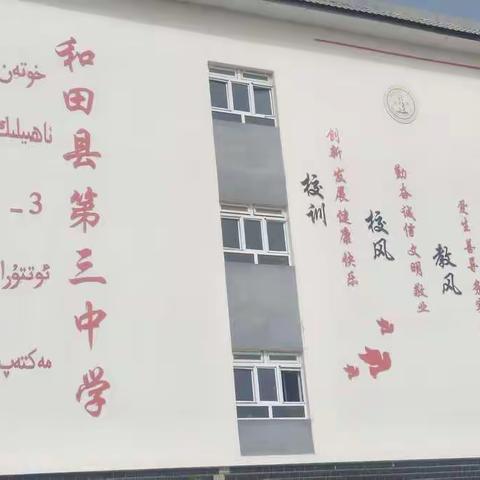 خوتەن
ناھىيىلىك
3-
ئوتتۇرا
مەكتەپ
和田县第三中学
校训
创新 发展 健康 快乐
校风
勤奋 诚信 文明 敬业
教风
爱生 善导